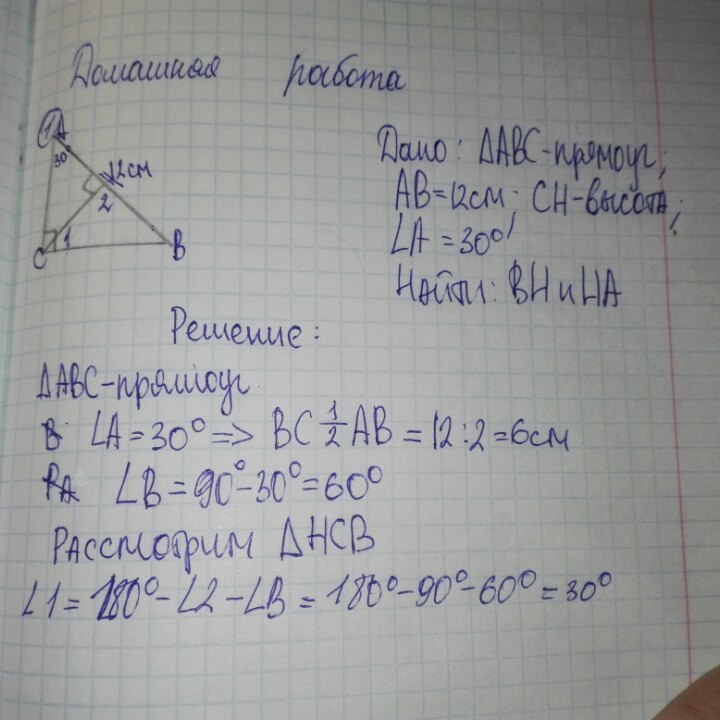 Домашная работа
A
30°
12см
2
C
1
B
Дано: ΔABC-прямоуг;
AB=12см; CH-высота;
∠A=30°
Найти: BH и HA
Решение:
ΔABC-прямоуг
В ∠A=30° => BC 1/2 AB = 12:2=6см
∠B=90°-30°=60°
Рассмотрим ΔHCB
∠1=180°-∠2-∠B=180°-90°-60°=30°